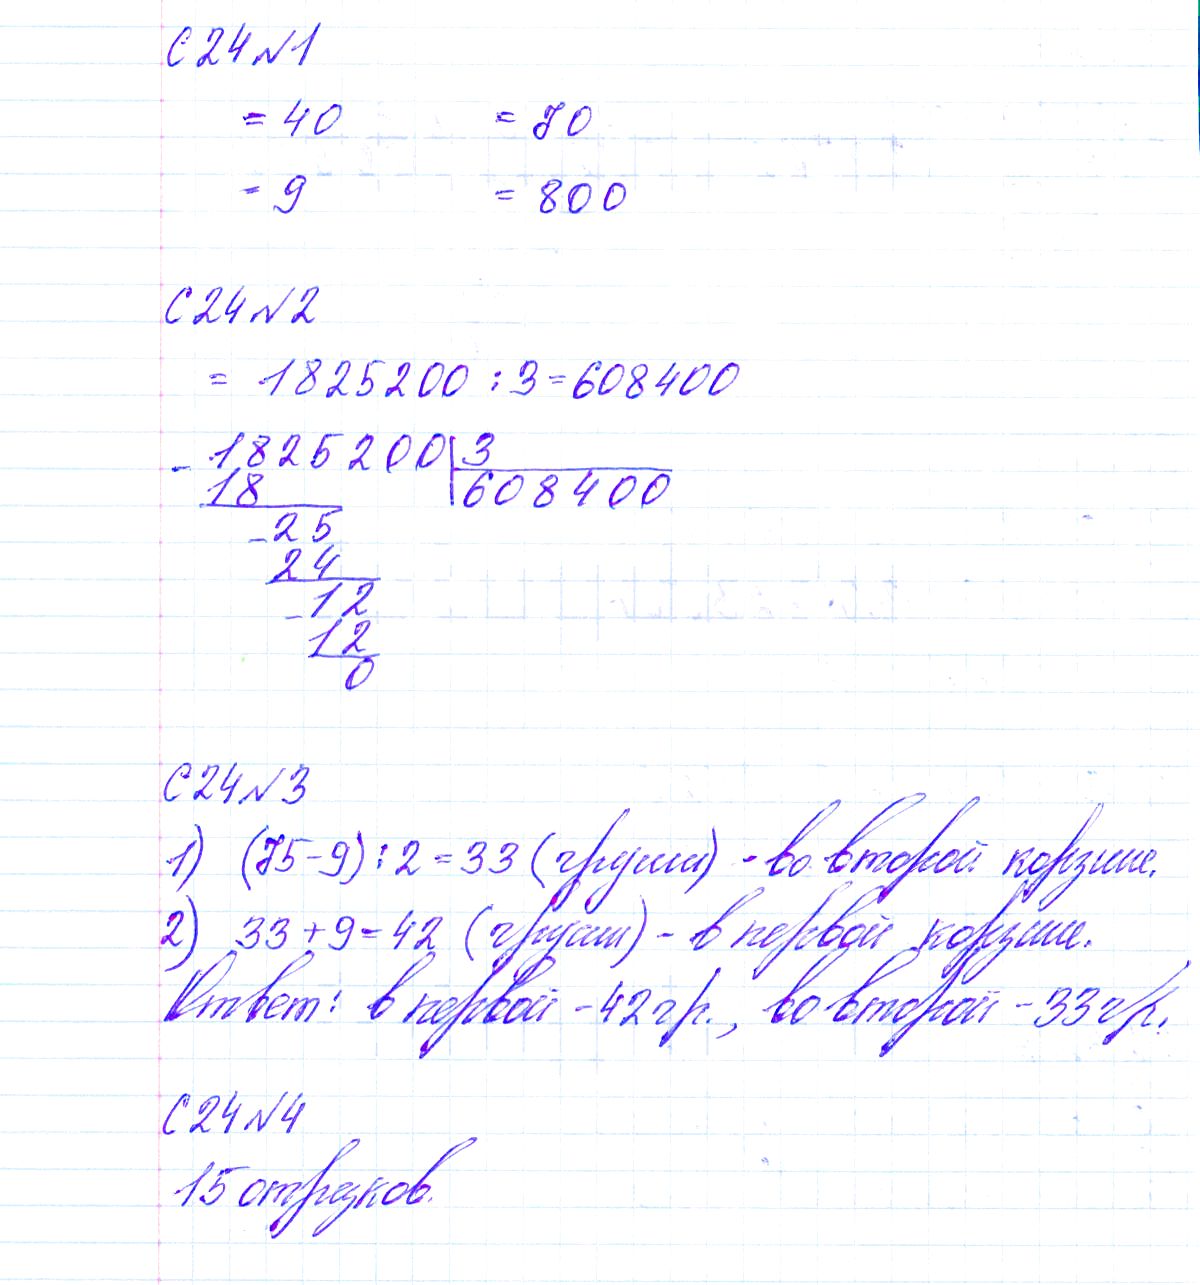 С24 №1
= 40 = 70
= 9 = 800
С24 №2
= 1825200 : 3 = 608400
- 1825200 | 3
18 608400
- 25
24
- 12
12
0
С24 №3
1) (75 - 9) : 2 = 33 (груши) - во второй корзине.
2) 33 + 9 = 42 (груши) - в первой корзине.
Ответ: в первой - 42 гр., во второй - 33 гр.
С24 №4
15 отрезков.